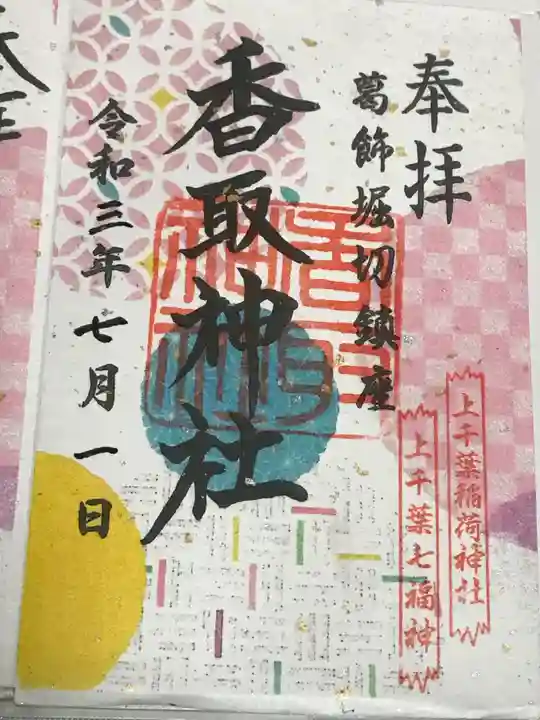 奉拝
葛飾堀切鎮座
香取神社
令和三年七月一日
上千葉稲荷神社
上千葉七福神
香取神社